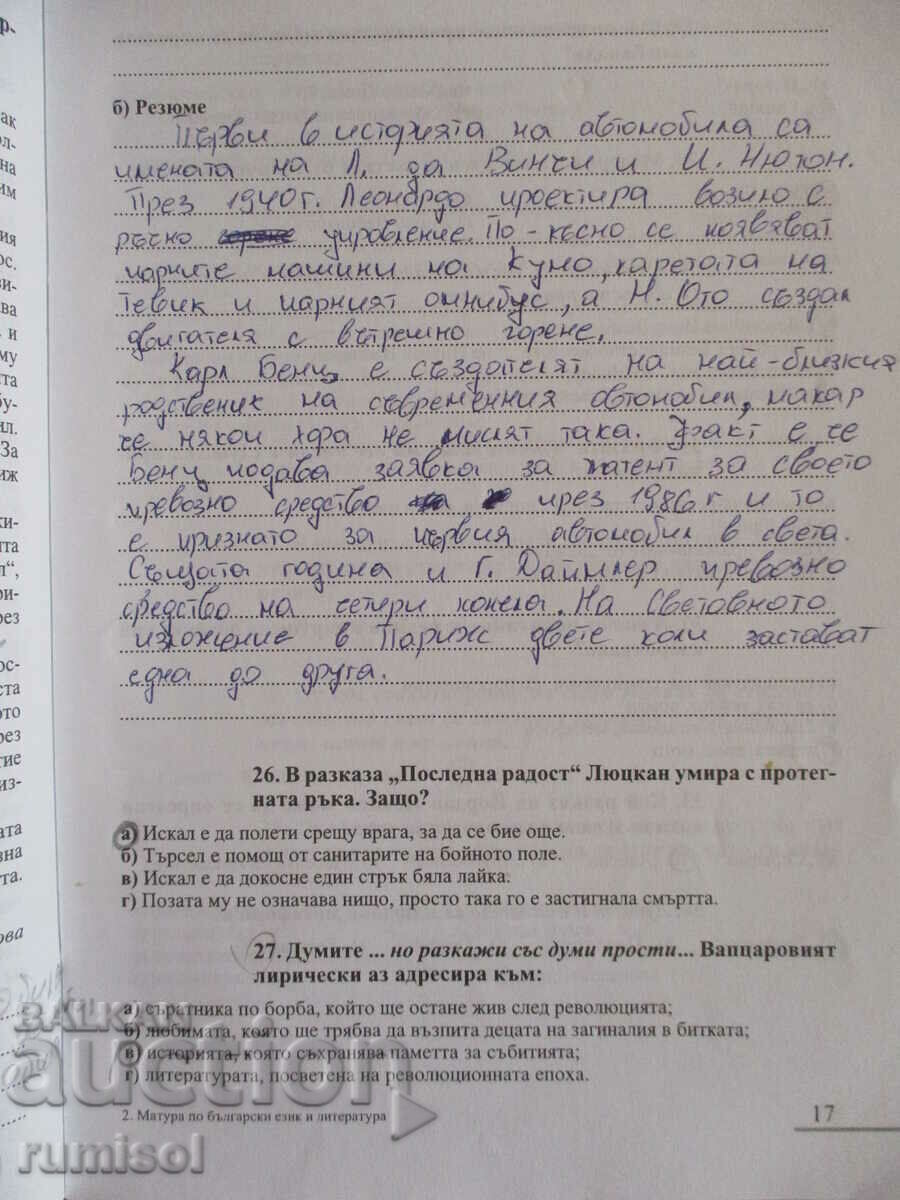 б) Резюме
Първи в историята на автомобила са
имената на Л. да Винчи и И. Нютон.
През 1940г. Леонардо проектира возило с
ръчно управление. По-късно се появяват
парните машини на Куно, каретата на
Тевик и парният омнибус, а Н. Ото създал
двигателя с вътрешно горене.
Карл Бенц е създателят на най-близкия
родственик на съвременния автомобил, макар
че някои хора не мислят така. Факт е че
Бенц подава заявка за патент за своето
превозно средство през 1986г и то
е признато за първия автомобил в света.
Същата година и Г. Даймлер превозно
средство на четери колела. На Световното
изложение в Париж двете коли застават
една до друга.
26. В разказа „Последна радост“ Люцкан умира с протег-
ната ръка. Защо?
а) Искал е да полети срещу врага, за да се бие още.
б) Търсел е помощ от санитарите на бойното поле.
в) Искал е да докосне един стрък бяла лайка.
г) Позата му не означава нищо, просто така го е застигнала смъртта.
27. Думите ... но разкажи със думи прости... Вапцаровият
лирически аз адресира към:
а) съратника по борба, който ще остане жив след революцията;
б) любимата, която ще трябва да възпита децата на загиналия в битката;
в) историята, която съхранява паметта за събитията;
г) литературата, посветена на революционната епоха.
2. Матура по български език и литература
17
БАЛКАН
auction
rumisol